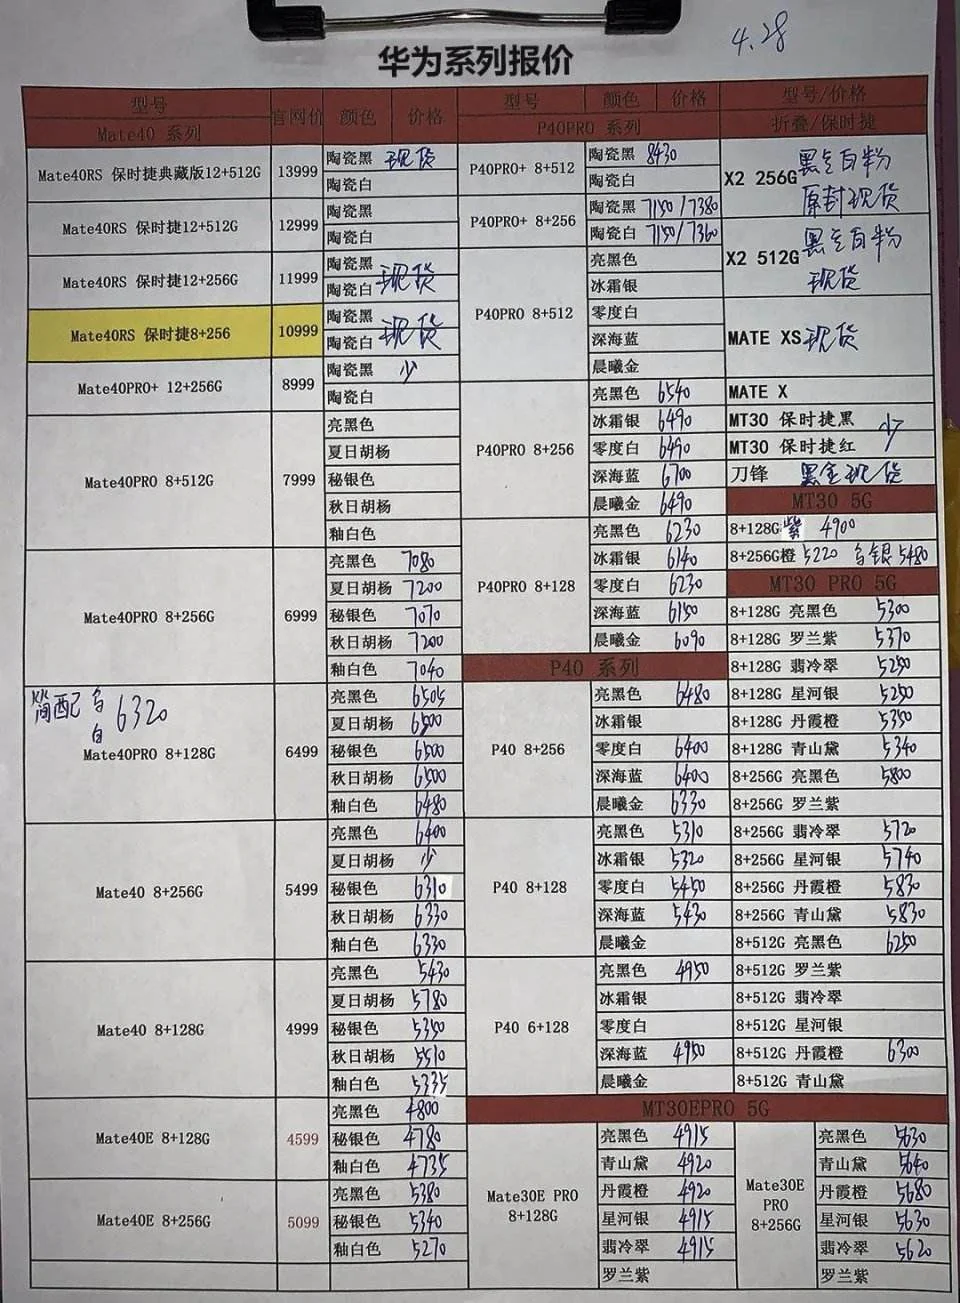 4.28
华为系列报价
型号 官网价 颜色 价格 型号 颜色 价格 型号/价格
Mate40 系列 P40PRO 系列 折叠/保时捷
Mate40RS 保时捷典藏版12+512G 13999
陶瓷黑 现货
陶瓷白
Mate40RS 保时捷12+512G 12999
陶瓷黑
陶瓷白
Mate40RS 保时捷12+256G 11999
陶瓷黑
陶瓷白 现货
Mate40RS 保时捷8+256 10999
陶瓷黑 现货
陶瓷白
Mate40PRO+ 12+256G 8999
陶瓷黑 少
陶瓷白
Mate40PRO 8+512G 7999
亮黑色
夏日胡杨
秘银色
秋日胡杨
釉白色
Mate40PRO 8+256G 6999
亮黑色 7080
夏日胡杨 7200
秘银色 7070
秋日胡杨 7200
釉白色 7040
简配 6320
白
Mate40PRO 8+128G 6499
亮黑色 6505
夏日胡杨 6500
秘银色 6500
秋日胡杨 6500
釉白色 6480
Mate40 8+256G 5499
亮黑色 6400
夏日胡杨 少
秘银色 6310
秋日胡杨 6330
釉白色 6330
Mate40 8+128G 4999
亮黑色 5430
夏日胡杨 5780
秘银色 5350
秋日胡杨 5510
釉白色 5335
Mate40E 8+128G 4599
亮黑色 4800
秘银色 4780
釉白色 4735
Mate40E 8+256G 5099
亮黑色 5380
秘银色 5340
釉白色 5270
P40PRO+ 8+512
陶瓷黑 8430
陶瓷白
P40PRO+ 8+256
陶瓷黑 7150/7380
陶瓷白 7150/7360
P40PRO 8+512
亮黑色
冰霜银
零度白
深海蓝
晨曦金
P40PRO 8+256
亮黑色 6540
冰霜银 6490
零度白 6490
深海蓝 6700
晨曦金 6490
P40PRO 8+128
亮黑色 6230
冰霜银 6140
零度白 6230
深海蓝 6150
晨曦金 6090
P40 系列
P40 8+256
亮黑色 6480
冰霜银
零度白 6400
深海蓝 6400
晨曦金 6330
P40 8+128
亮黑色 5310
冰霜银 5320
零度白 5450
深海蓝 5430
晨曦金
P40 6+128
亮黑色 4950
冰霜银
零度白
深海蓝 4950
晨曦金
X2 256G 黑 白粉
原封现货
X2 512G 黑 白粉
现货
MATE XS 现货
MATE X
MT30 保时捷黑 少
MT30 保时捷红
刀锋 黑金现货
MT30 5G
8+128G 紫 4900
8+256G橙 5220 银 5480
MT30 PRO 5G
8+128G 亮黑色 5300
8+128G 罗兰紫 5370
8+128G 翡冷翠 5250
8+128G 星河银 5250
8+128G 丹霞橙 5350
8+128G 青山黛 5340
8+256G 亮黑色 5800
8+256G 罗兰紫
8+256G 翡冷翠 5720
8+256G 星河银 5740
8+256G 丹霞橙 5830
8+256G 青山黛 5830
8+512G 亮黑色 6250
8+512G 罗兰紫
8+512G 翡冷翠
8+512G 星河银
8+512G 丹霞橙 6300
8+512G 青山黛
MT30EPRO 5G
Mate30E PRO
8+128G
亮黑色 4915
青山黛 4920
丹霞橙 4920
星河银 4915
翡冷翠 4915
罗兰紫
Mate30E
PRO
8+256G
亮黑色 5630
青山黛 5640
丹霞橙 5680
星河银 5630
翡冷翠 5620
罗兰紫